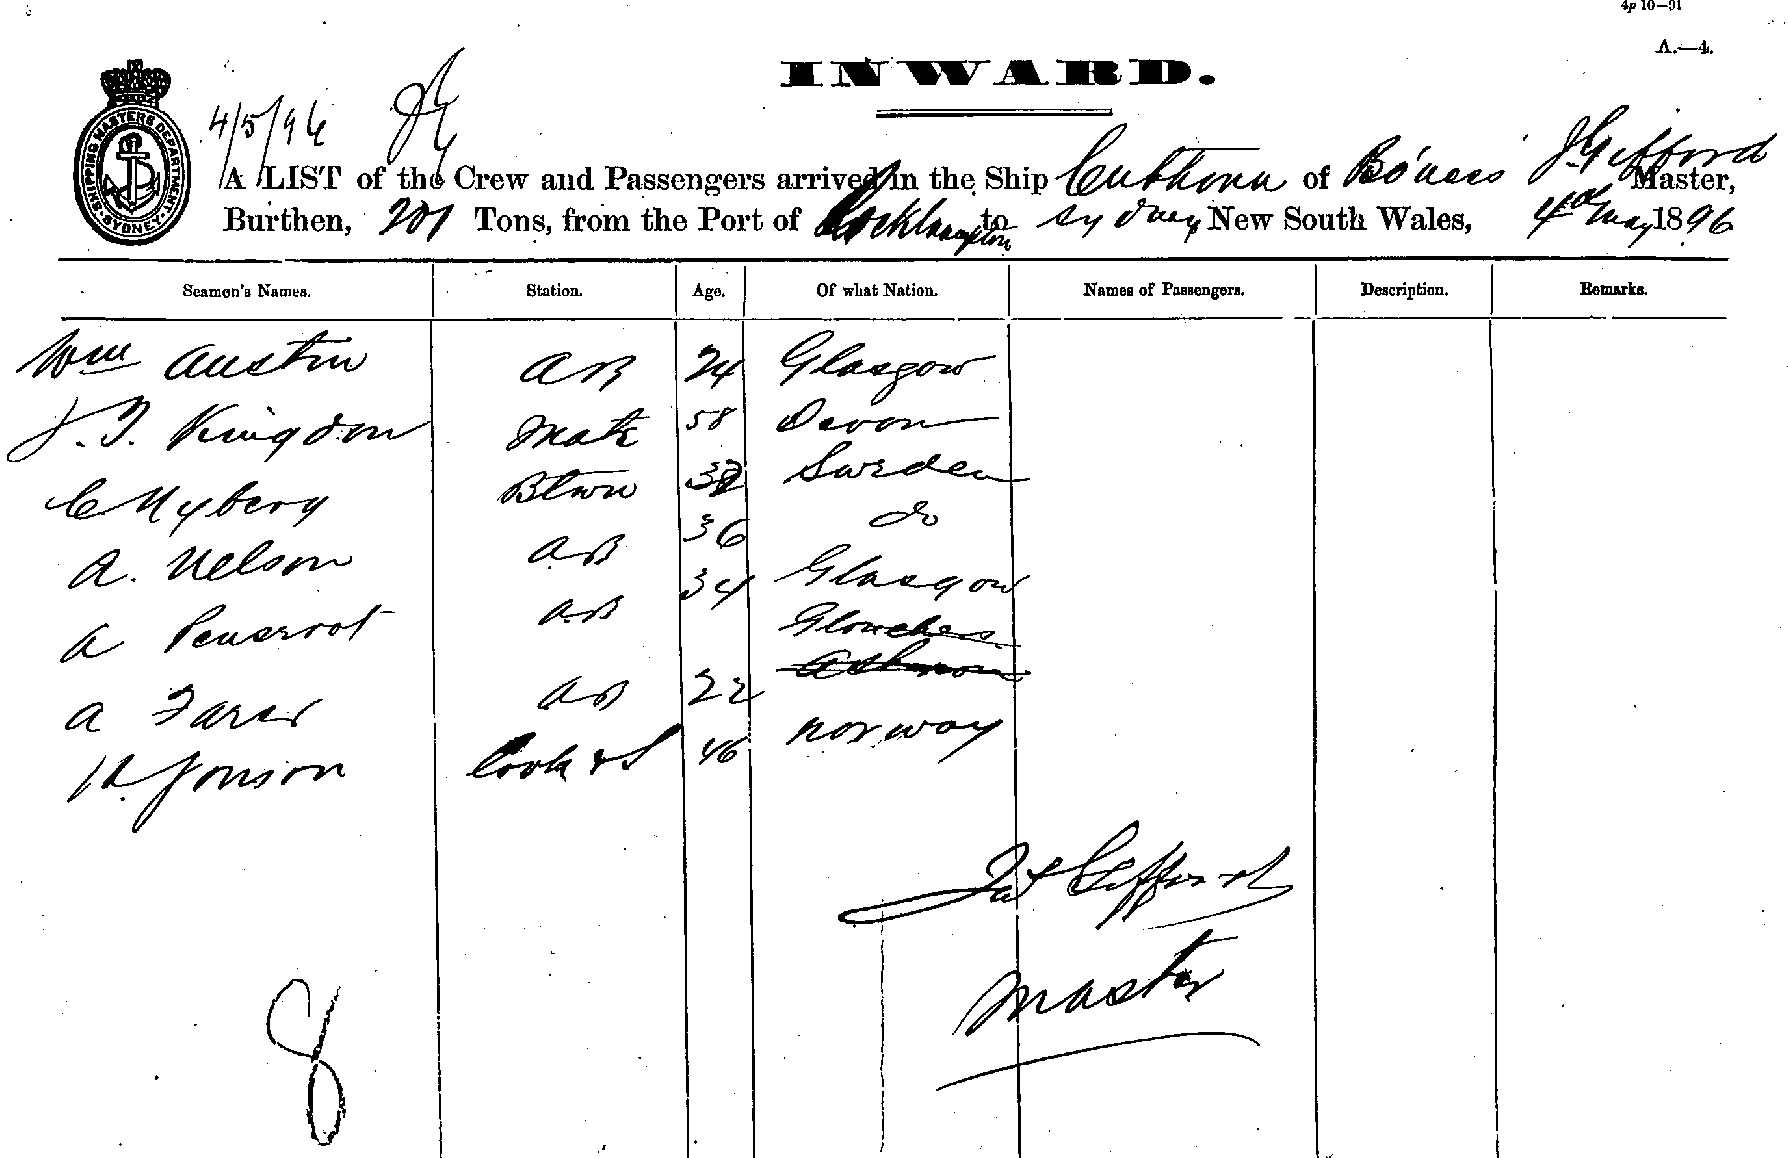 4p 10—91
A.—4.
INWARD.
SHIPPING MASTERS DEPARTMENT SYDNEY
4/5/96
A LIST of the Crew and Passengers arrived in the Ship Cuthona of Bo'ness J. Gifford Master,
Burthen, 201 Tons, from the Port of Rockhampton to Sydney New South Wales, 4th May 1896
Seamen's Names. Station. Age. Of what Nation. Names of Passengers. Description. Remarks.
Wm Austin AB 24 Glasgow
J. T. Kingdon Mate 58 Devon
C Nyberg Btwn Sweden
A. Nelson AB 36 do
A AB 34 Glasgow
A AB 22
H. Jonson Cook & S 46 Norway
Jas Gifford
Master
8